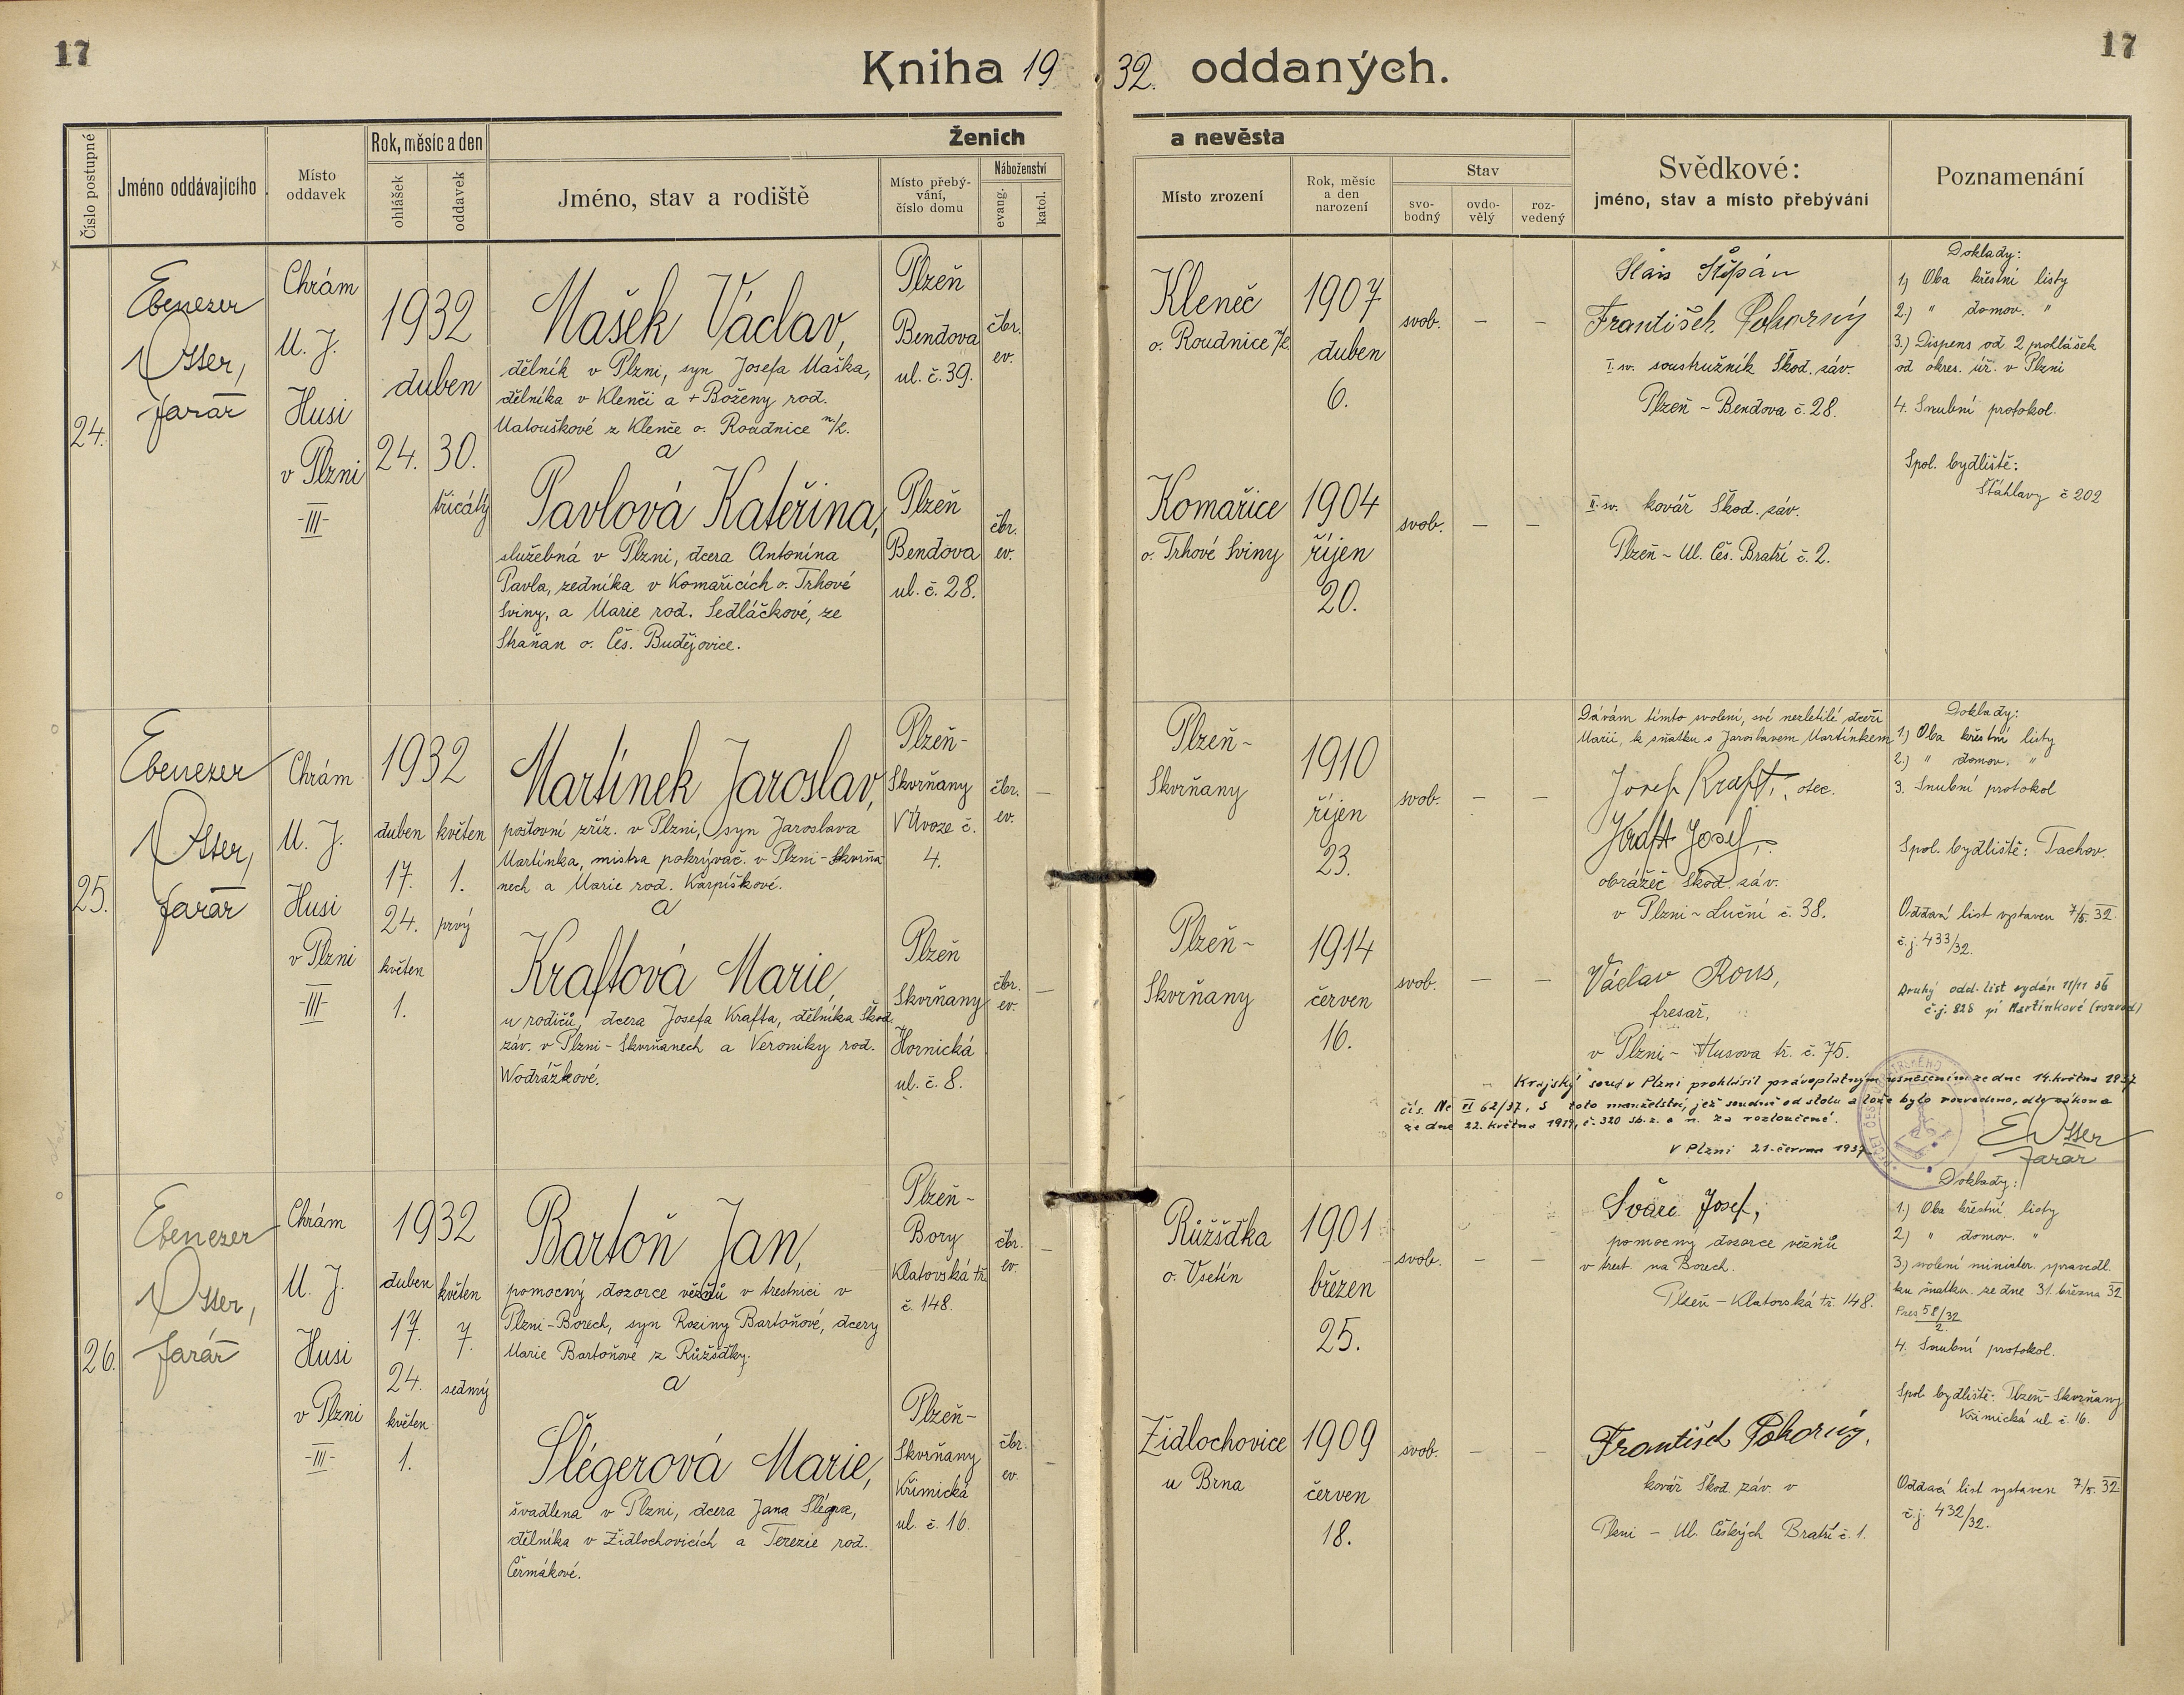 17
17
Kniha 19 32. oddaných.
Číslo postupné
Jméno oddávajícího
Místo oddavek
Rok, měsíc a den
ohlášek
oddavek
Ženich
Jméno, stav a rodiště
Místo přebý-
vání,
číslo domu
Náboženství
evang.
katol.
a nevěsta
Místo zrození
Rok, měsíc
a den
narození
Stav
svo-
bodný
ovdo-
vělý
roz-
vedený
Svědkové:
jméno, stav a místo přebývání
Poznamenání
24.
Ebenezer
Otter,
farář
Chrám
M. J.
Husi
v Plzni
-III-
1932
duben
24. 30.
třicátý
Mašek Václav,
dělník v Plzni, syn Josefa Maška,
dělníka v Klenči a + Boženy rod.
Matouškové z Klenče o. Roudnice n/L.
a
Plzeň
Bendova
ul. č. 39.
čbr.
ev.
Kleneč
o. Roudnice n/L
1907
duben
6.
svob. – –
Pavlová Kateřina,
služebná v Plzni, dcera Antonína
Pavla, zedníka v Komařicích o. Trhové
Sviny, a Marie rod. Sedláčkové, ze
Straňan o. Čes. Budějovice.
Plzeň
Bendova
ul. č. 28.
čbr.
ev.
Komařice
o. Trhové Sviny
1904
říjen
20.
svob. – –
Štěpán
František Pokorný
I. sv. soustružník Škod. záv.
Plzeň - Bendova č. 28.
II. sv. kovář Škod. záv.
Plzeň - Ul. Čes. Bratří č. 2.
Doklady:
1) Oba křestní listy
2) " domov. "
3.) Dispens od 2 prohlášek
od okres. úř. v Plzni
4. Snubní protokol.
Spol. bydliště:
Šťáhlavy č 202
25.
Ebenezer
Otter,
farář
Chrám
M. J.
Husi
v Plzni
-III-
1932
duben květen
17. 1.
24. prvý
květen
1.
Martínek Jaroslav,
poštovní zříz. v Plzni, syn Jaroslava
Martínka, mistra pokrývač. v Plzni-Skvrňa
nech a Marie rod. Karpíškové.
a
Plzeň-
Skvrňany
V Úvoze č.
4.
čbr.
ev.
–
Plzeň-
Skvrňany
1910
říjen
23.
svob. – –
Kraftová Marie,
u rodičů, dcera Josefa Krafta, dělníka Škod.
záv. v Plzni - Skvrňanech a Veroniky rod.
Wodrážkové.
Plzeň
Skvrňany
Hornická
ul. č. 8.
čbr.
ev.
–
Plzeň-
Skvrňany
1914
červen
16.
svob. – –
Dávám tímto svolení, své nezletilé dceři
Marii, k sňatku s Jaroslavem Martínkem
Josef Kraft, otec.
Kraft Josef,
obrážeč Škod. záv.
v Plzni - Luční č. 38.
Václav Rous,
fresař,
v Plzni - Husova tř. č. 75.
Doklady:
1.) Oba křestní listy
2.) " domov. "
3. Snubní protokol
Spol. bydliště: Tachov.
Oddací list vystaven 7/5. 32.
č. j. 433/32.
Druhý odd. list vydán 11/11 36
č. j. 828 pí Martínkové (rozvod)
Krajský soud v Plzni prohlásil právoplatným usnesením ze dne 14. května 1937
čís. Nc VI 62/37, 5 toto manželství, jež soudně od stolu a lože bylo rozvedeno, dle zákona
ze dne 22. května 1919, č. 320 sb. z. a n. za rozloučené.
V Plzni 21. června 1937.
E Otter
farář
26.
Ebenezer
Otter,
farář
Chrám
M. J.
Husi
v Plzni
-III-
1932
duben květen
17. 7.
24. sedmý
květen
1.
Bartoň Jan,
pomocný dozorce vězňů v trestnici v
Plzni-Borech, syn Roziny Bartoňové, dcery
Marie Bartoňové z Růžďky.
a
Plzeň-
Bory
Klatovská tř.
č. 148.
čbr.
ev.
–
Růžšďka
o. Vsetín
1901
březen
25.
svob. – –
Šlégerová Marie,
švadlena v Plzni, dcera Jana Šlégra,
dělníka v Židlochovicích a Terezie rod.
Čermákové.
Plzeň-
Skvrňany
Křimická
ul. č. 16.
čbr.
ev.
–
Židlochovice
u Brna
1909
červen
18.
svob. – –
Josef,
pomocný dozorce vězňů
v trest. na Borech.
Plzeň - Klatovská tř. 148.
František Pokorný,
kovář Škod. záv. v
Plzni - Ul. Českých Bratří č. 1.
Doklady:
1.) Oba křestní listy
2.) " domov. "
3.) svolení minister. spravedl.
ku sňatku ze dne 31. března 32
Pres 58/32
2.
4. Snubní protokol.
Spol. bydliště: Plzeň-Skvrňany
Křimická ul. č. 16.
Oddací list vystaven 7/5. 32.
č. j. 432/32.